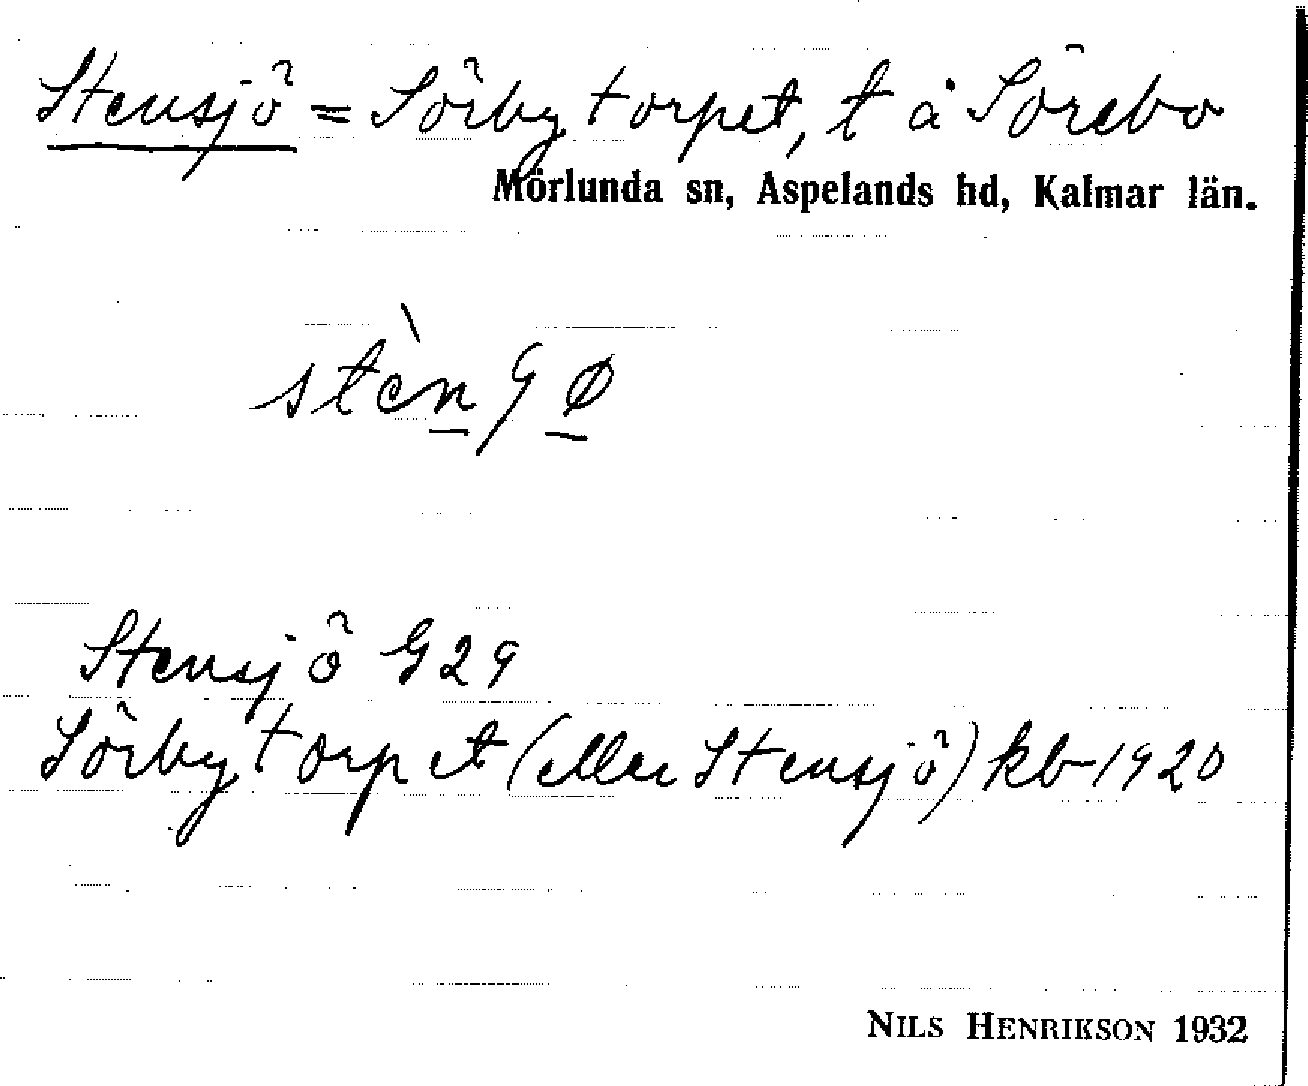 Stensjö = Sörbytorpet, t å Sörebo
Mörlunda sn, Aspelands hd, Kalmar län.
Stensjö G 29
Sörbytorpet (eller Stensjö) kb 1920
NILS HENRIKSON 1932